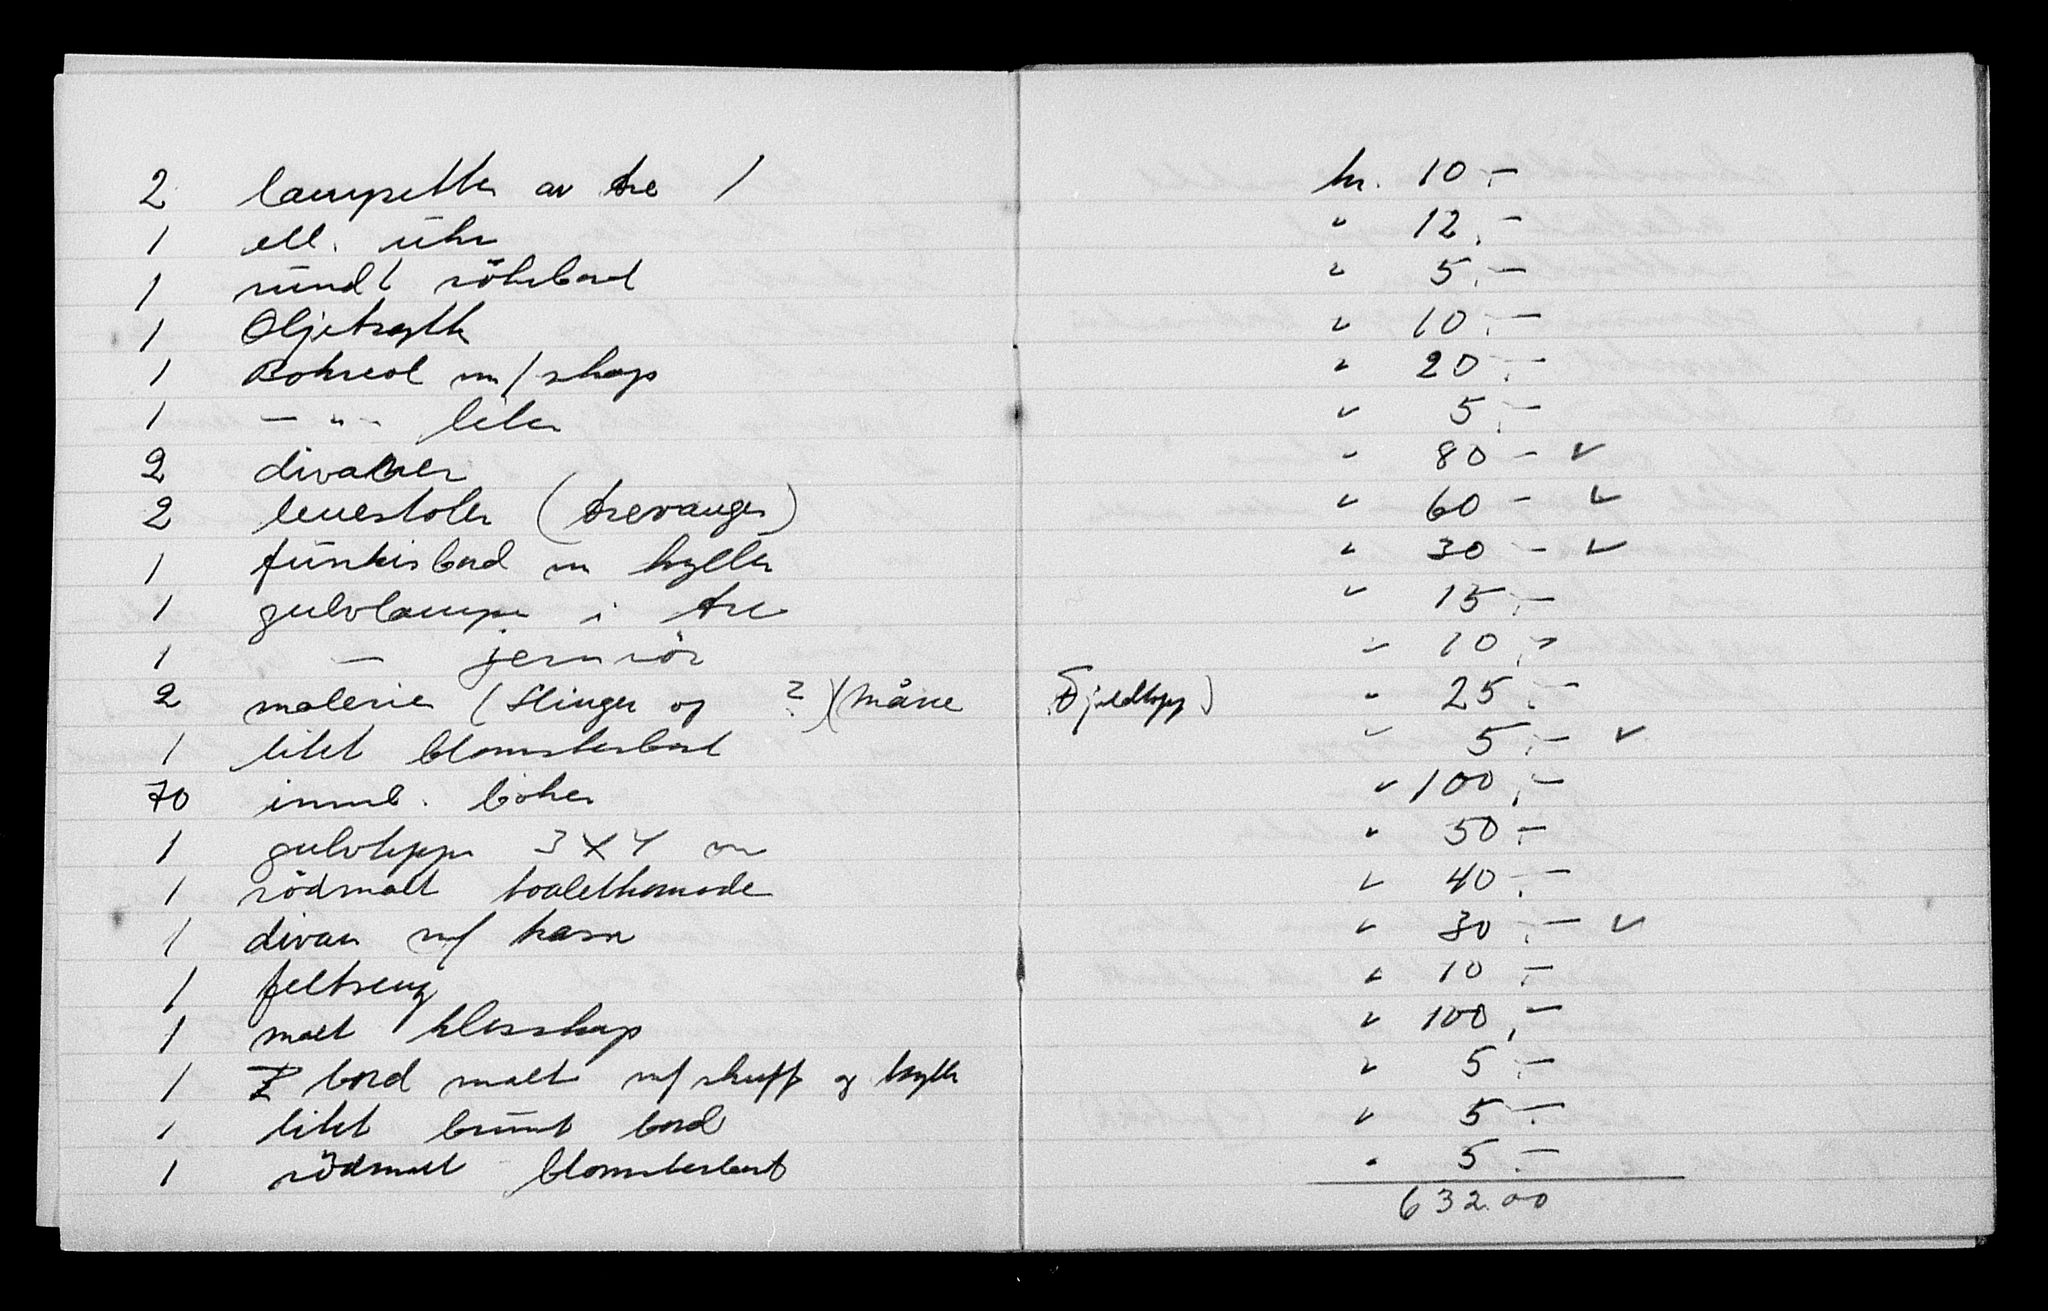 2 lampetter av tre / kr. 10.-
1 ell. uhr " 12.-
1 rundt rökebord " 5.-
1 Oljetrykk " 10.-
1 Bokreol m/skap " 20.-
1 - " - liten " 5.-
2 divaner " 80 - ✓
2 lenestoler (trevanger) " 60 - ✓
1 funkisbord m hylle " 30 - ✓
1 gulvlampe i tre " 15.-
1 - jernrör " 10.-
2 malerier (Slinger og ?) (Måne Fjeldtopp) " 25.-
1 litet blomsterbord " 5.- ✓
70 innb. böker " 100.-
1 gulvteppe 3 X 4 m " 50.-
1 rödmalt toaletkomode " 40.-
1 divan m/ kasse " 30.- ✓
1 feltseng " 10.-
1 malt klesskap " 100.-
1 bord malt m/ skuff og hylle " 5.-
1 litet brunt bord " 5.-
1 rödmalt blomsterbord " 5.-
632.00